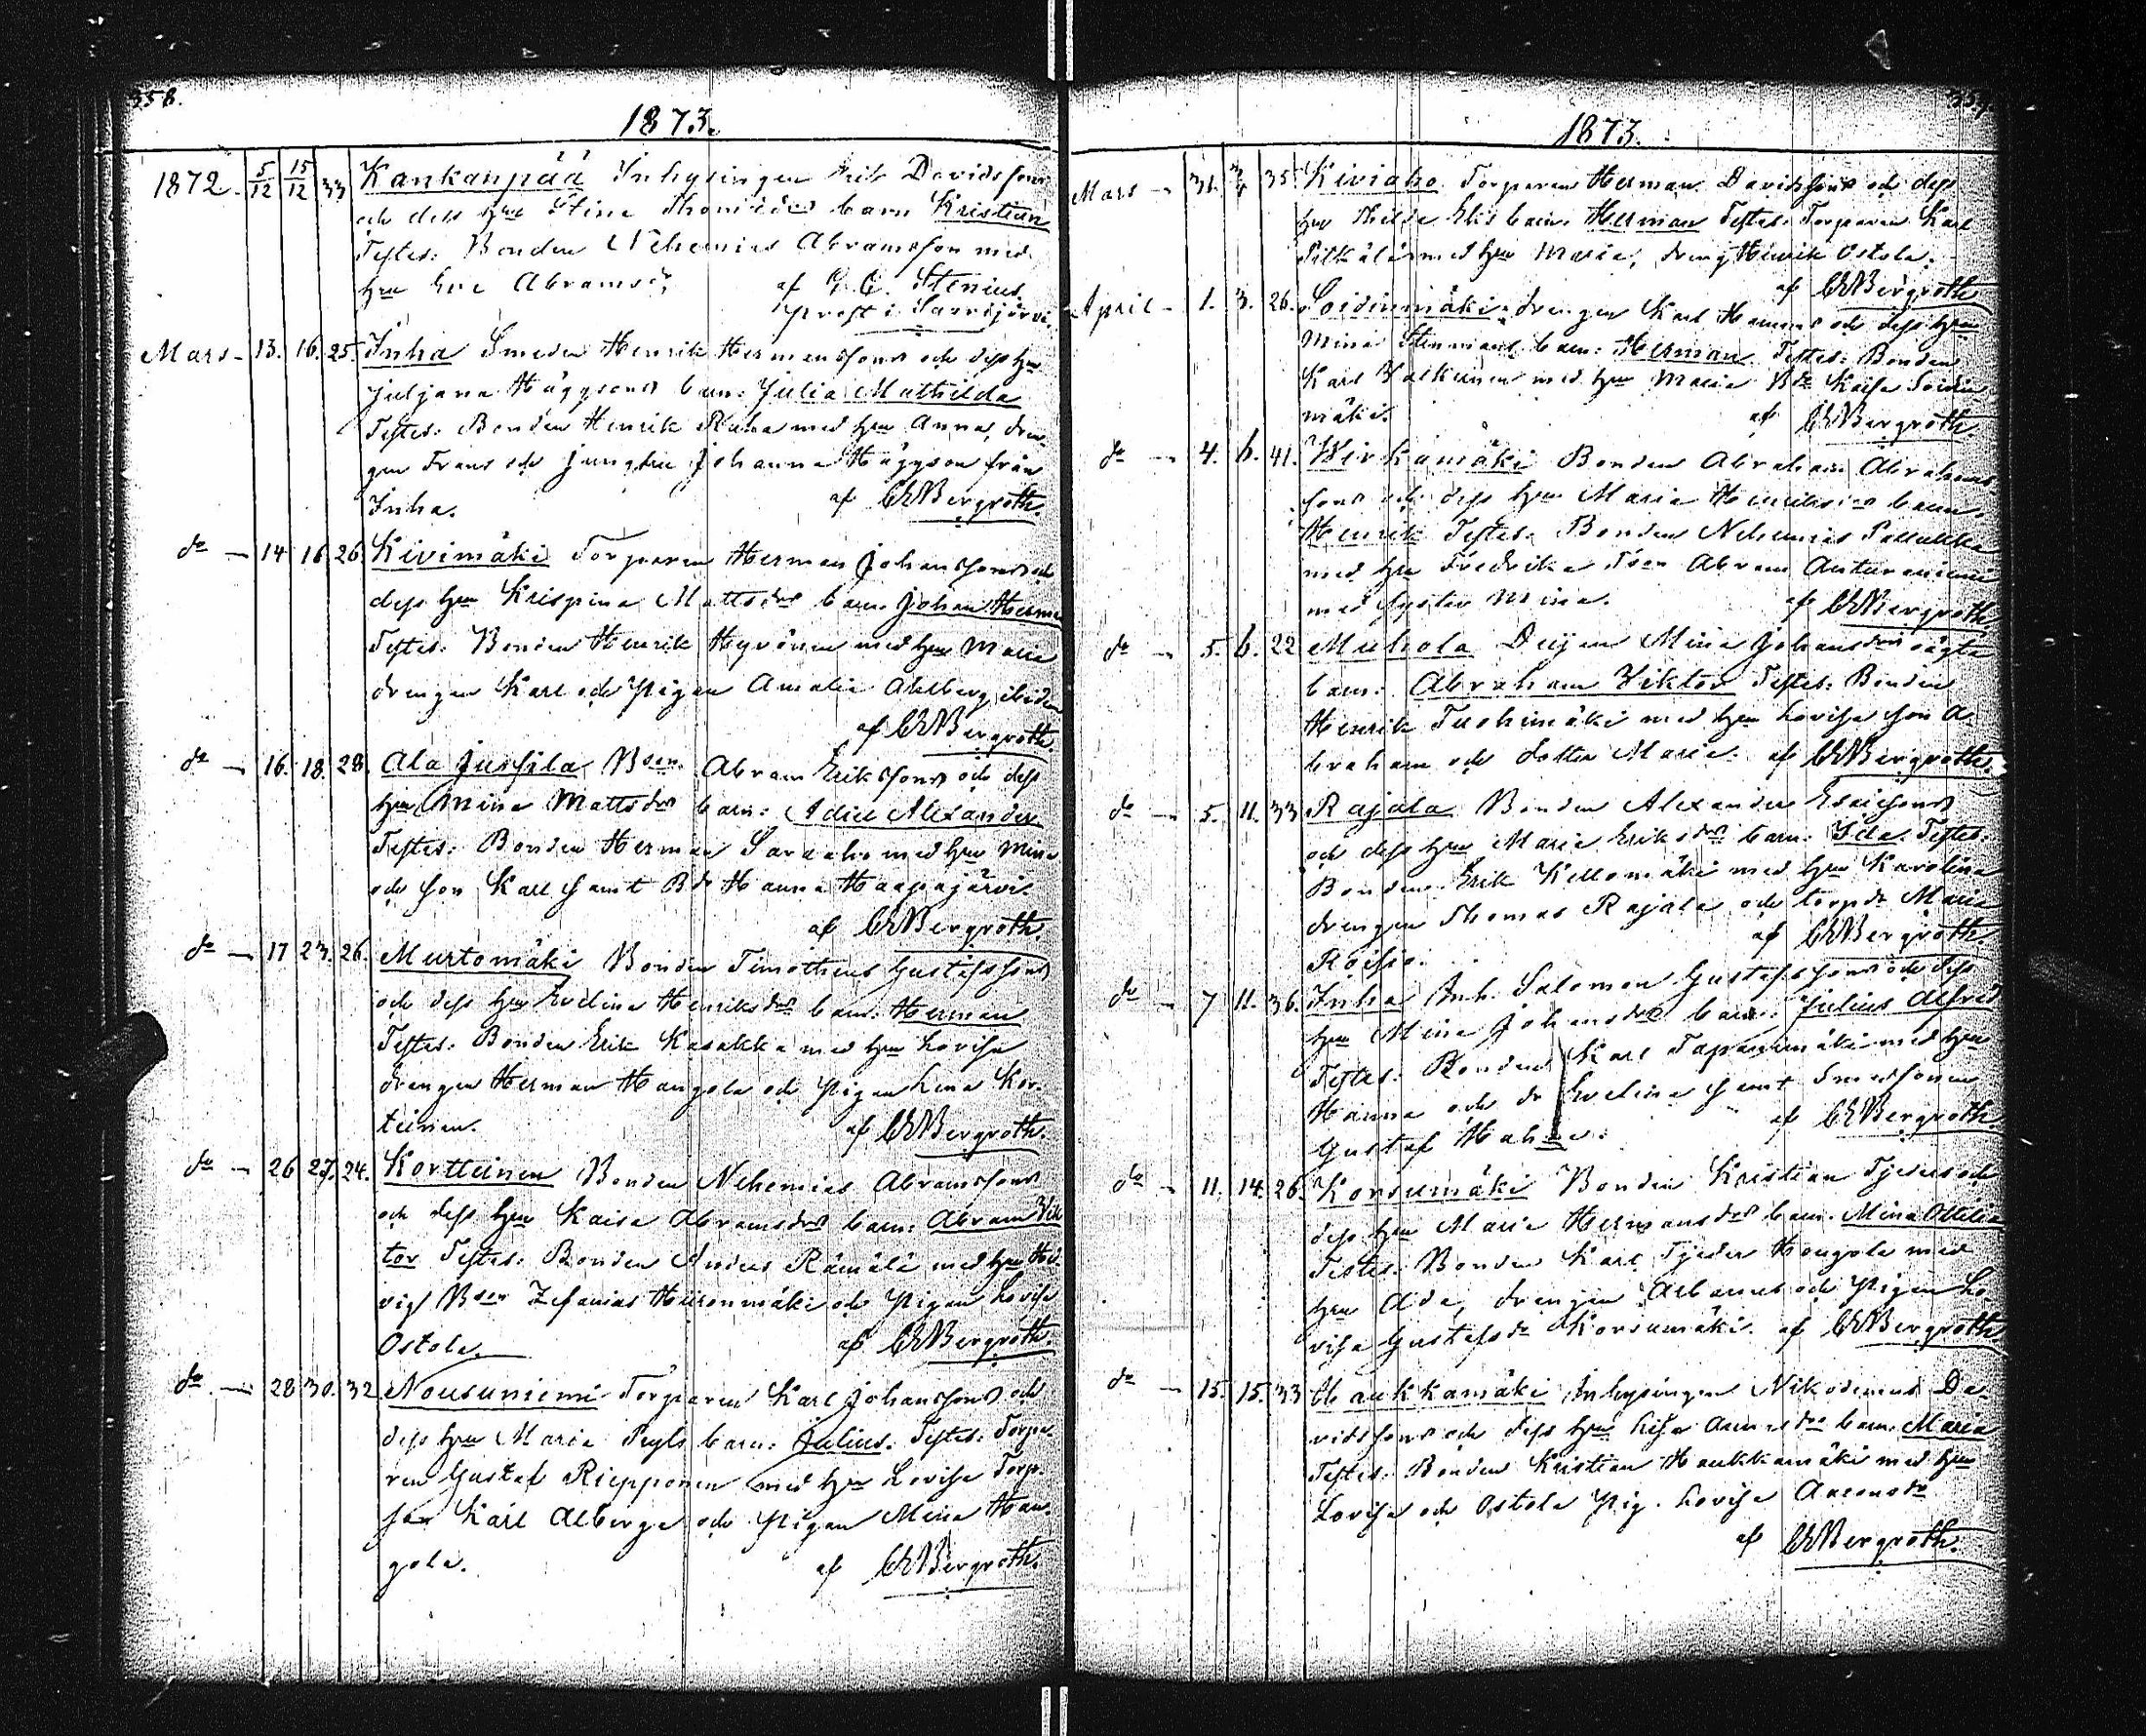 358.
1873.
1872. 5/12 15/12 33 Kankanpää Inhysingen Erik Davidsson
och dess hru Stina Thomasdr barn Kristian
Testes: Bonden Nehemias Abramsson med
hru Eva Abramsdr af G. C. Stenius
prest i Saarijärvi
Mars - 13. 16. 25. Inha Smeden Henrik Hermanssons och dess hru
Juljana Häggsons barn: Julia Mathilda
Testes: Bonden Henrik Ruha med hru Anna, dren
gen Frans och jungfru Johanna Häggson från
Inha. af CEBergroth.
do - 14 16 26. Kivimäki Torparen Herman Johanssons och
dess hru Krispina Mattsdrs barn Johan Herman
Testes: Bonden Henrik Hyvönen med hru Maria
drengen Karl och Pigan Amalia Ahlberg ibidem
af CEBergroth
do - 16. 18. 28. Ala Jussila Bden Abram Erikssons och dess
hru Mina Mattsdrs barn: Adiel Alexander
Testes: Bonden Herman Saraaho med hru Mina
och son Karl samt Bdr Hanna Haapajärvi.
af CEBergroth.
do - 17 23. 26. Murtomäki Bonden Timotheus Gustafssons
och dess hru Evelina Henriksdrs barn: Herman
Testes: Bonden Erik Kasakka med hru Lovisa
drengen Herman Hangola och Pigan Lena Kor-
teinen. af CEBergroth.
do - 26 27. 24. Korteinen Bonden Nehemias Abramssons
och dess hru Kaisa Abramsdrs barn: Abram Vik
tor Testes: Bonden Anders Rämälä med hru Hed-
vig, Bson Zefanias Hiironmäki och Pigan Lovisa
Ostola. af CEBergroth.
do - 28 30. 32 Nousuniemi Torparen Karl Johanssons och
dess hru Maria barn: Julius. Testes: Torpa-
ren Gustaf Riepponen med hru Lovisa Torp.
son Karl Alberga och Pigan Mina Han-
gola. af CEBergroth.
1873.
Mars - 31. 35. Kiviaho Torparen Herman Davidssons och dess
hru Thilda Elis barn: Herman Testes: Torparen Karl
Pitkälä med hru Maria, dreng Henrik Ostola.
af CEBergroth
April - 1. 3. 26. Soidinmäki drengen Karl Hannus och dess hru
Mina Stenmans barn: Herman Testes: Bonden
Karl Valkeinen med hru Maria Bdr Kaisa Soidin
mäki. af CEBergroth.
do - 4. 6. 41. Wirkamäki Bonden Abraham Abrahams-
sons och dess hru Maria Henriksdrs barn:
Henrik Testes: Bonden Nehemias Pallukka
med hru Fredrika Tson Abram Anturaniemi
med syster Mina. af CEBergroth.
do - 5. 6. 22 Muhola Deijan Mina Johansdrs oägta
barn: Abraham Viktor Testes: Bonden
Henrik Tuohimäki med hru Lovisa son A-
braham och dotter Maria. af CEBergroth.
do - 5. 11. 33 Rajala Bonden Alexander Esaiessons
och dess hru Maria Eriksdrs barn: Ida Testes:
Bonden Erik Kellomäki med hru Karolina
drengen Thomas Rajala och torpdr Maria
Röisiö. af CEBergroth.
do - 7 11. 36. Inha Inh. Salomon Gustafssons och dess
hru Mina Johansdrs barn: Julius Alfred
Testes: Bonden Karl Tapanimäki med hru
Hanna och dr Evelina samt Smedsonen
Gustaf Hahne. af CEBergroth.
do - 11. 14. 26. Korsumäki Bonden Kristian Tjeders och
dess hru Maria Hermansdrs barn: Mina Ottilia
Testes: Bonden Karl Tjeder Hongola med
hru Ada, drengen Albanus och Pigan Lo
visa Gustafsdr Korsumäki. af CEBergroth
do - 15. 15. 33 Haukkamäki Inhysingen Nikodemus Da-
vidssons och dess hru Lisa barn: Maria
Testes: Bonden Kristian Haukkamäki med hru
Lovisa och Ostola Pig. Lovisa
af CEBergroth.